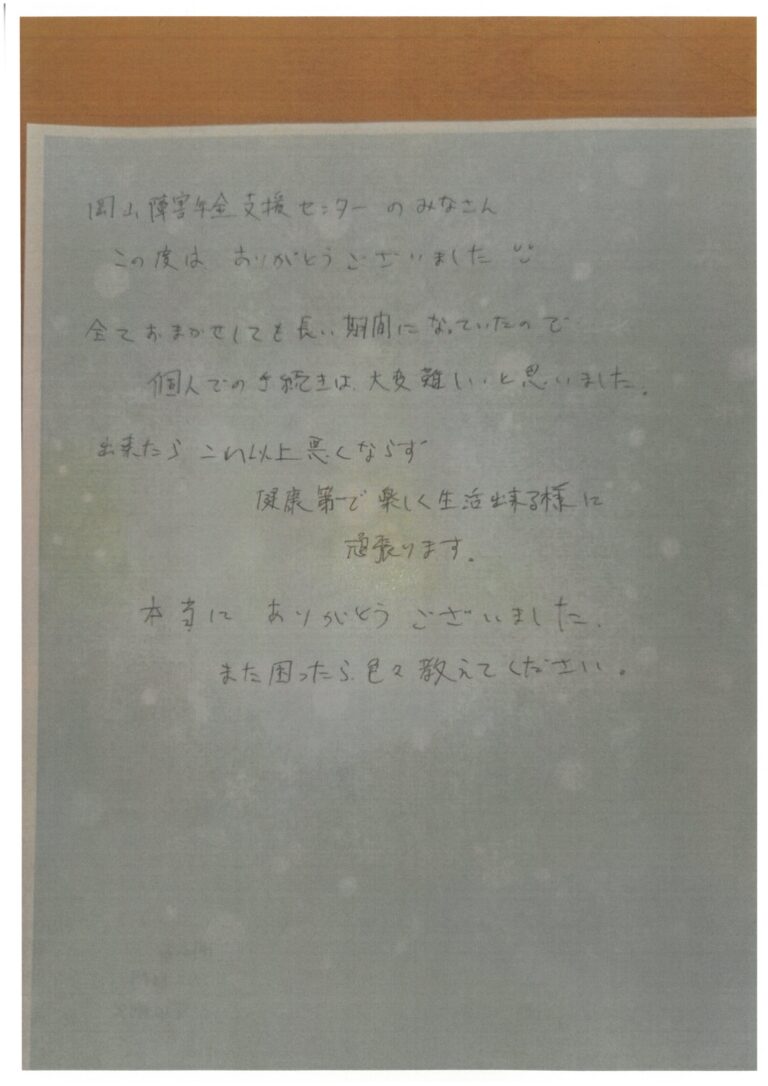 岡山障害年金支援センターのみなさん
この度は ありがとうございました
全ておまかせしても長い期間になっていたので
個人での手続きは、大変難しいと思いました。
出来たら これ以上悪くならず
健康第一で 楽しく生活出来る様に
頑張ります。
本当に ありがとう ございました。
また困ったら、色々教えてください。